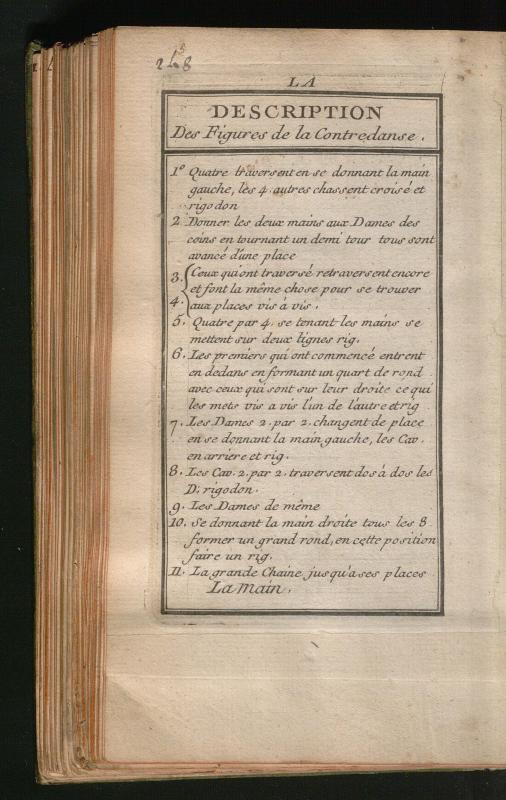 248
LA
DESCRIPTION
Des Figures de la Contredanse.
1º Quatre traversent en se donnant la main
gauche, les 4 autres chassent croisé et
rigodon
2 Donner les deux mains aux Dames des
coins en tournant un demi tour tous sont
avancé d'une place
3. Ceux qui ont traversé retraversent encore
et font la même chose pour se trouver
4. aux places vis à vis.
5. Quatre par 4. se tenant les mains se
mettent sur deux lignes rig.
6. Les premiers qui ont commencé entrent
en dedans en formant un quart de rond
avec ceux qui sont sur leur droite ce qui
les mets vis a vis l'un de l'autre et rig
7. Les Dames 2. par 2. changent de place
en se donnant la main gauche, les Cav.
en arriere et rig.
8. Les Cav. 2. par 2. traversent dos à dos les
D. rigodon.
9. Les Dames de même
10. Se donnant la main droite tous les 8
former un grand rond, en cette position
faire un rig.
11. La grande Chaine jusqu'a ses places
La Main.